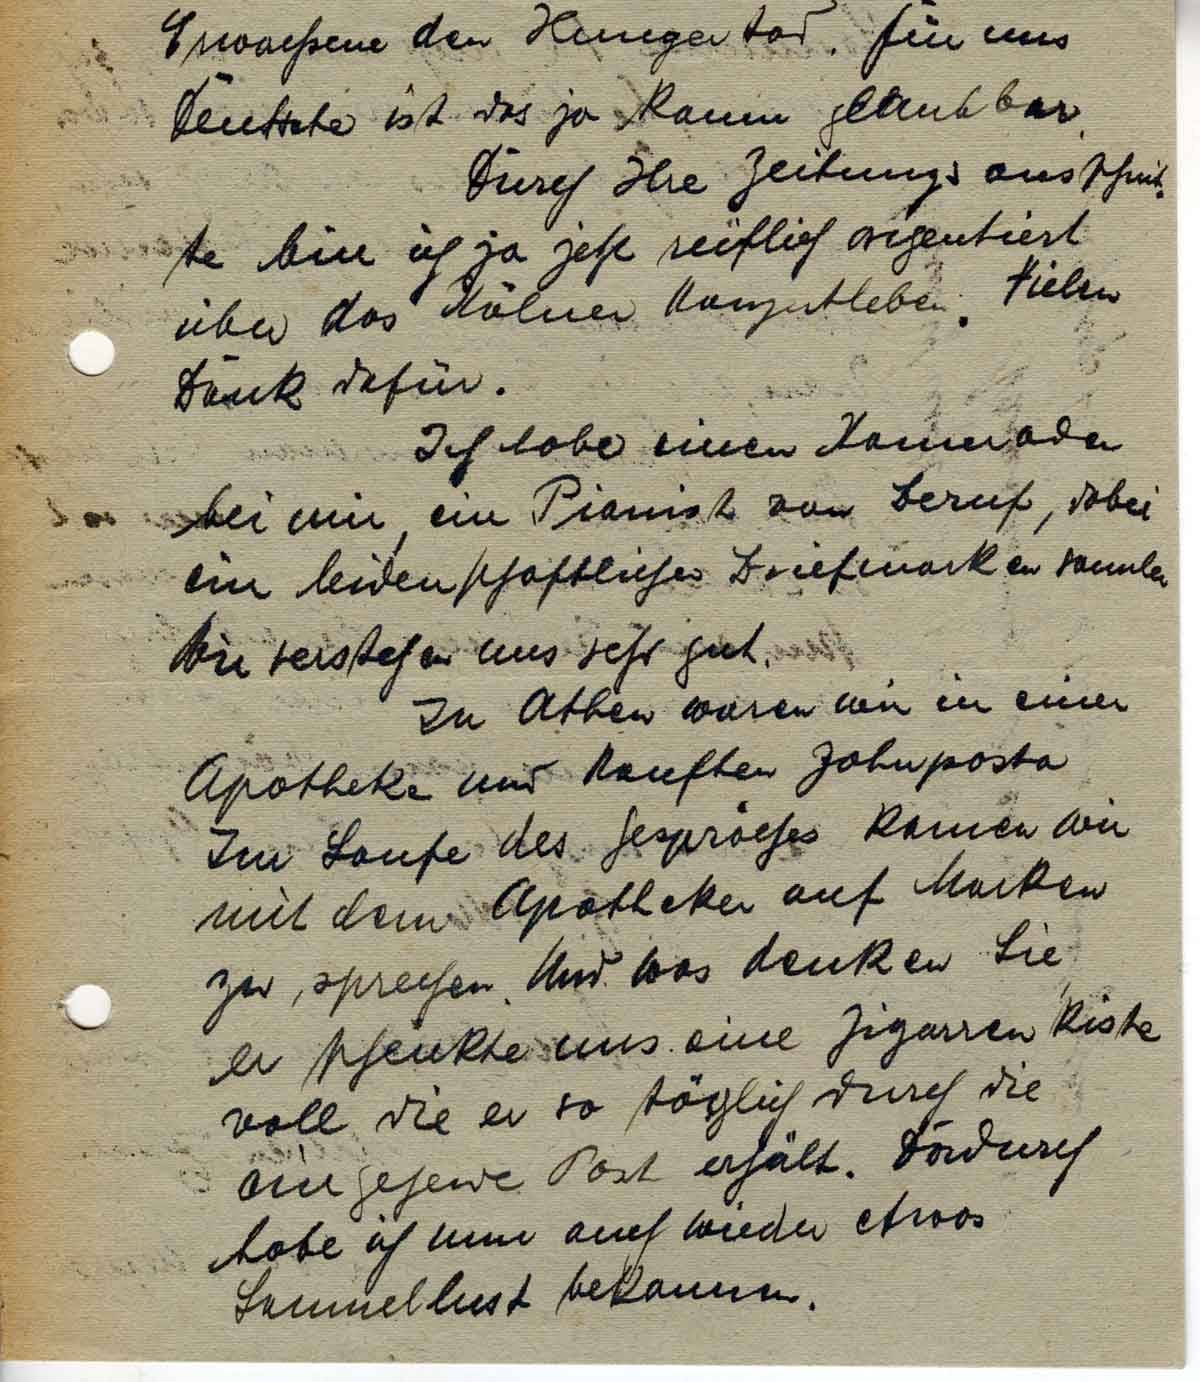 Erwachsene den Hungertod. Für uns
Deutsche ist das ja kaum glaubbar.
Durch Ihre Zeitungsausschnit-
te bin ich ja jetzt reichlich orientiert
über das Kölner Konzertleben. Vielen
Dank dafür.
Ich habe einen Kameraden
bei mir, ein Pianist von Beruf, dabei
ein leidenschaftlicher Briefmarkensammler
Wir verstehen uns sehr gut.
In Athen waren wir in einer
Apotheke und kauften Zahnpasta
Im Laufe des Gespräches kamen wir
mit dem Apotheker auf Marken
zu sprechen. Und was denken Sie
er schenkte uns eine Zigarrenkiste
voll die er so täglich durch die
eingehende Post erhält. Dadurch
habe ich nun auch wieder etwas
Sammellust bekommen.